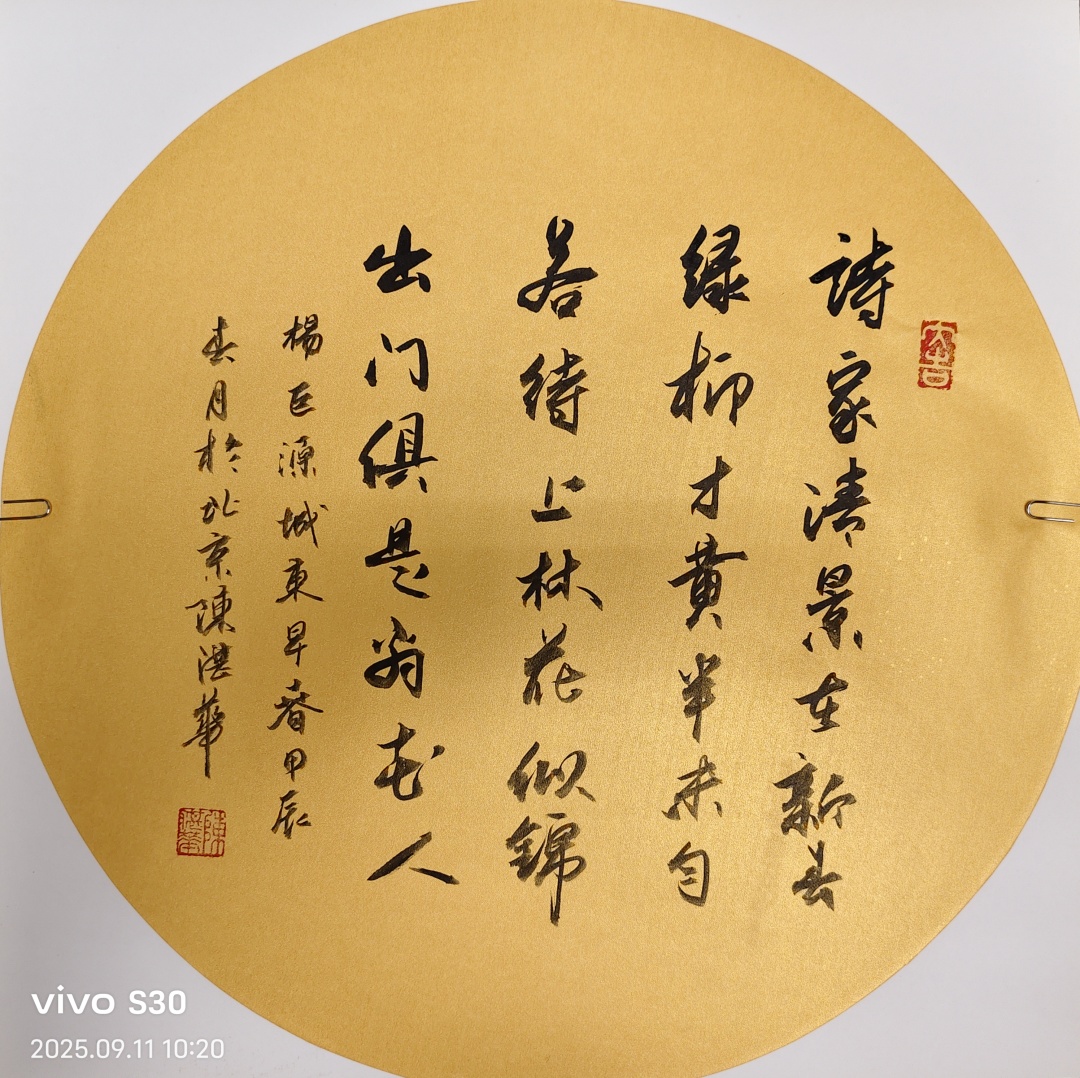 大吉
詩家清景在新春
绿柳才黄半未匀
若待上林花似錦
出门俱是看花人
楊巨源城東早春甲辰
春月於北京陳華
vivo S30
2025.09.11 10:20